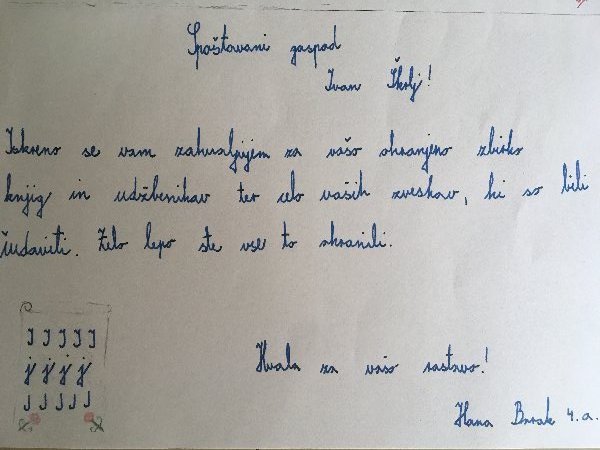 Spoštovani gospod
Ivan Škrlj!
Iskreno se vam zahvaljujem za vašo ohranjeno zbirko
knjig in udžbenikov ter celo vaših zveskov, ki so bili
čudoviti. Zelo lepo ste vse to ohranili.
Hvala za vašo rastavo!
Hana Brrak 4.a.
J J J J J
j j j j
J J J J J